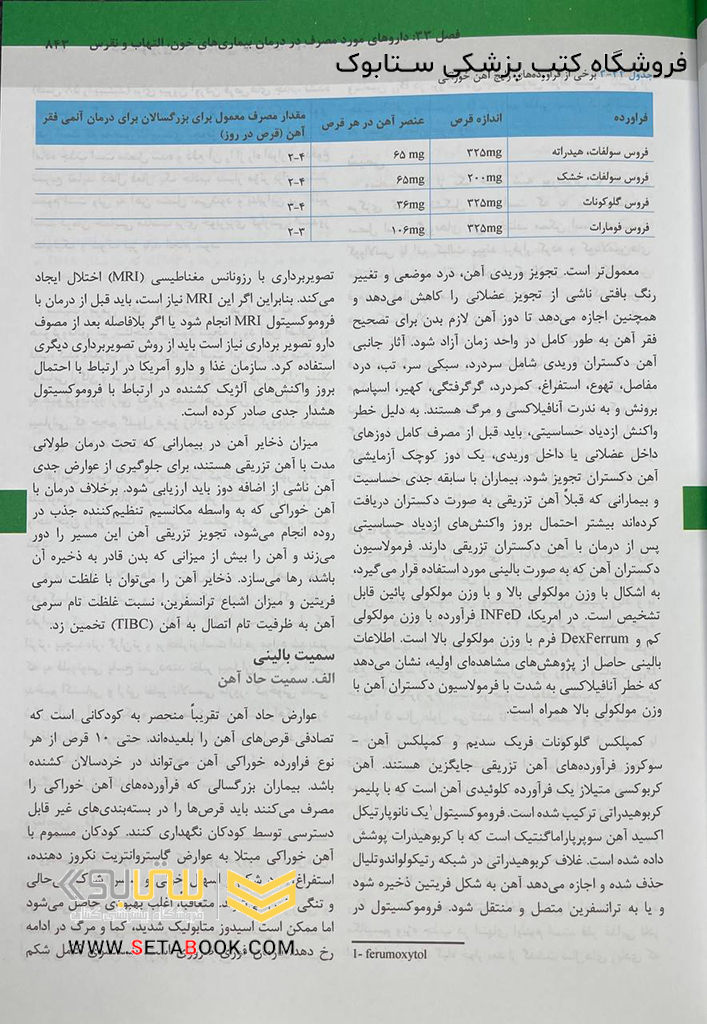 فصل ۳۳: داروهای مورد مصرف در درمان بیماری‌های خون، التهاب و نقرس ۸۴۳
فروشگاه کتب پزشکی ستابوک
جدول ۳۳-۳ برخی از فرآورده‌های رایج آهن خوراکی
فرآورده اندازه قرص عنصر آهن در هر قرص مقدار مصرف معمول برای بزرگسالان برای درمان آنمی فقر
آهن (قرص در روز)
فروس سولفات، هیدراته ۳۲۵mg ۶۵ mg ۲-۴
فروس سولفات، خشک ۲۰۰mg ۶۵mg ۲-۴
فروس گلوکونات ۳۲۵mg ۳۶mg ۳-۴
فروس فومارات ۳۲۵mg ۱۰۶mg ۲-۳
معمول‌تر است. تجویز وریدی آهن، درد موضعی و تغییر
رنگ بافتی ناشی از تجویز عضلانی را کاهش می‌دهد و
همچنین اجازه می‌دهد تا دوز آهن لازم بدن برای تصحیح
فقر آهن به طور کامل در واحد زمان آزاد شود. آثار جانبی
آهن دکستران وریدی شامل سردرد، سبکی سر، تب، درد
مفاصل، تهوع، استفراغ، کمردرد، گرگرفتگی، کهیر، اسپاسم
برونش و به ندرت آنافیلاکسی و مرگ هستند. به دلیل خطر
واکنش ازدیاد حساسیتی، باید قبل از مصرف کامل دوزهای
داخل عضلانی یا داخل وریدی، یک دوز کوچک آزمایشی
آهن دکستران تجویز شود. بیماران با سابقه جدی حساسیت
و بیمارانی که قبلاً آهن تزریقی به صورت دکستران دریافت
کرده‌اند بیشتر احتمال بروز واکنش‌های ازدیاد حساسیتی
پس از درمان با آهن دکستران تزریقی دارند. فرمولاسیون
دکستران آهن که به صورت بالینی مورد استفاده قرار می‌گیرد،
به اشکال با وزن مولکولی بالا و با وزن مولکولی پائین قابل
تشخیص است. در امریکا، INFeD فرآورده با وزن مولکولی
کم و DexFerrum فرم با وزن مولکولی بالا است. اطلاعات
بالینی حاصل از پژوهش‌های مشاهده‌ای اولیه، نشان می‌دهد
که خطر آنافیلاکسی به شدت با فرمولاسیون دکستران آهن با
وزن مولکولی بالا همراه است.
کمپلکس گلوکونات فریک سدیم و کمپلکس آهن –
سوکروز فرآورده‌های آهن تزریقی جایگزین هستند. آهن
کربوکسی متیلاز یک فرآورده کلوئیدی آهن است که با پلیمر
کربوهیدراتی ترکیب شده است. فروموکسیتول۱ یک نانوپارتیکل
اکسید آهن سوپرپاراماگنتیک است که با کربوهیدرات پوشش
داده شده است. غلاف کربوهیدراتی در شبکه رتیکولواندوتلیال
حذف شده و اجازه می‌دهد آهن به شکل فریتین ذخیره شود
و یا به ترانسفرین متصل و منتقل شود. فروموکسیتول در
1- ferumoxytol
تصویربرداری با رزونانس مغناطیسی (MRI) اختلال ایجاد
می‌کند. بنابراین اگر این MRI نیاز است، باید قبل از درمان با
فروموکسیتول MRI انجام شود یا اگر بلافاصله بعد از مصوف
دارو تصویر برداری نیاز است باید از روش تصویربرداری دیگری
استفاده کرد. سازمان غذا و دارو آمریکا در ارتباط با احتمال
بروز واکنش‌های آلژیک کشنده در ارتباط با فروموکسیتول
هشدار جدی صادر کرده است.
میزان ذخایر آهن در بیمارانی که تحت درمان طولانی
مدت با آهن تزریقی هستند، برای جلوگیری از عوارض جدی
آهن ناشی از اضافه دوز باید ارزیابی شود. برخلاف درمان با
آهن خوراکی که به واسطه مکانسیم تنظیم‌کننده جذب در
روده انجام می‌شود، تجویز تزریقی آهن این مسیر را دور
می‌زند و آهن را بیش از میزانی که بدن قادر به ذخیره آن
باشد، رها می‌سازد. ذخایر آهن را می‌توان با غلظت سرمی
فریتین و میزان اشباع ترانسفرین، نسبت غلظت تام سرمی
آهن به ظرفیت تام اتصال به آهن (TIBC) تخمین زد.
سمیت بالینی
الف. سمیت حاد آهن
عوارض حاد آهن تقریباً منحصر به کودکانی است که
تصادفی قرص‌های آهن را بلعیده‌اند. حتی ۱۰ قرص از هر
نوع فراورده خوراکی آهن می‌تواند در خردسالان کشنده
باشد. بیماران بزرگسالی که فرآورده‌های آهن خوراکی را
مصرف می‌کنند باید قرص‌ها را در بسته‌بندی‌های غیر قابل
دسترسی توسط کودکان نگهداری کنند. کودکان مسموم با
آهن خوراکی مبتلا به عوارض گاستروانتریت نکروز دهنده،
استفراغ، درد شکم، اسهال خونی و بی‌حالی
و تنگی متعاقباً، اغلب بهبودی حاصل می‌شود
اما ممکن است اسیدوز متابولیک شدید، کما و مرگ در ادامه
رخ دهد. درمان فوری ضروری است. کامل شکم
ستابوک
فروشگاه کتب پزشکی
WWW.SETABOOK.COM